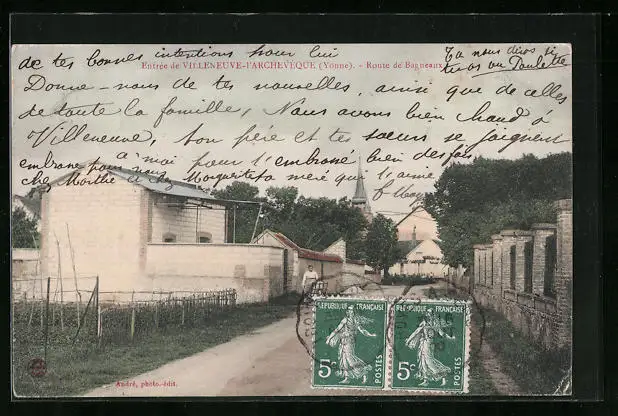 de tes bonnes intentions pour lui
Entrée de VILLENEUVE-l'ARCHEVÊQUE (Yonne). - Route de Bagneaux
Tu nous diras si
tu as vu Paulette
Donne-nous de tes nouvelles, ainsi que de celles
de toute la famille, Nous avons bien chaud à
Villeneuve, ton père et tes sœurs se joignent
à moi pour t'embrasser bien des fois
embrasse pour nous
chez Marthe et chez Marguerite
mère qui t'aime
RÉPUBLIQUE FRANÇAISE
5c POSTES
RÉPUBLIQUE FRANÇAISE
5c POSTES
André, photo.-édit.